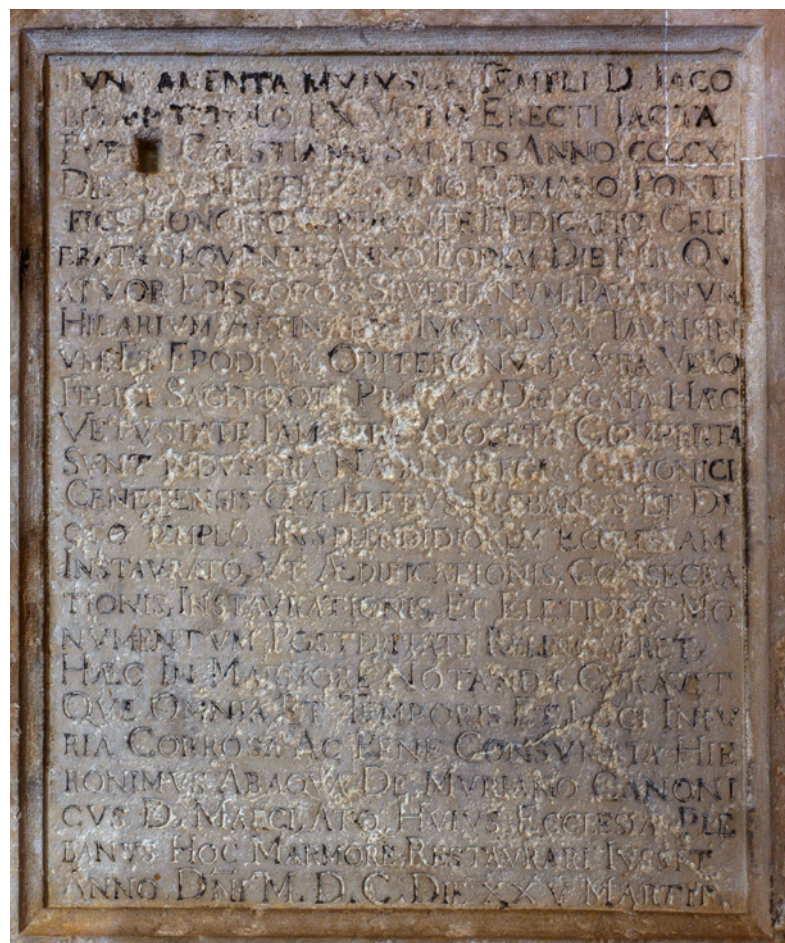 TEMPLI D. IACO
EX VOTO ERECTI IACTA
CHRISTIANAE SALVTIS ANNO CCCCXXI
ROMANO PONTI
FICE HONORIO DEDICATIO CELE
SEQVENTI ANNO EODEM DIE PER QV
ATVOR EPISCOPOS SEVERIANVM PATAVINVM
HILARIVM ALTINATEM IVCVNDVM TARVISIN
VM ET EPODIVM OPITERGINVM CVRA VERO
FELICI SACERDOTI DELEGATA HÆC
VETVSTATE IAM ABOLETA COMPERTA
SVNT INDVSTRIA REGIA CANONICI
CENETENSIS QVI ELETVS PLEBANVS ET DI
CTO TEMPLO IN SPLENDIDIOREM ECCLESIAM
INSTAVRATO, VT ÆDIFICATIONIS, CONSECRA
TIONIS, INSTAVRATIONIS, ET ELETIONIS MO
NVMENTVM POSTERITATI RELINQVERET,
HÆC IN MARMORE NOTANDA CVRAVIT
QVE OMNIA ET TEMPORIS ET LOCI INIV
RIA CORROSA AC PENE CONSVMATA HIE
RONIMVS ABAQVA DE MVRIANO CANONI
CVS D. MARCI, ATQ. HVIVS ECCLESIÆ PLE
BANVS HOC MARMORE RESTAVRARI IVSSIT
ANNO DÑI M.D.C. DIE XXV MARTII